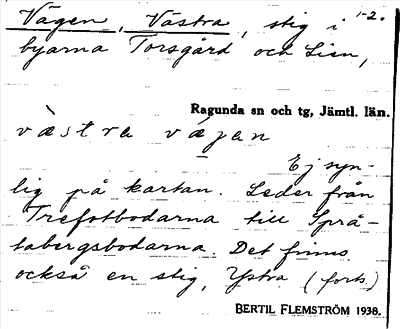 Vägen, Västra, stig i 1-2.
byarna Torsgård och Lien,
Ragunda sn och tg, Jämtl. län.
vӕ̀stra vä́gan
Ej syn-
lig på kartan. Leder från
Trefotbodarna till Språ-
tabergsbodarna. Det finns
också en stig, Ystra (forts.)
BERTIL FLEMSTRÖM 1938.